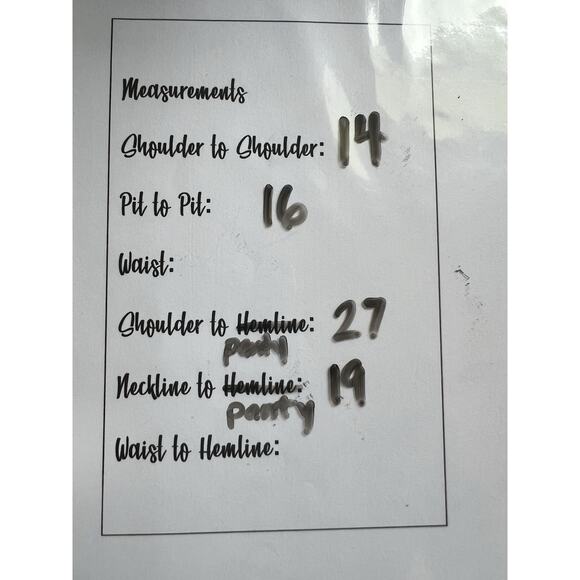 Measurements
Shoulder to Shoulder: 14
Pit to Pit: 16
Waist:
Shoulder to Hemline: 27
panty
Neckline to Hemline: 19
panty
Waist to Hemline: